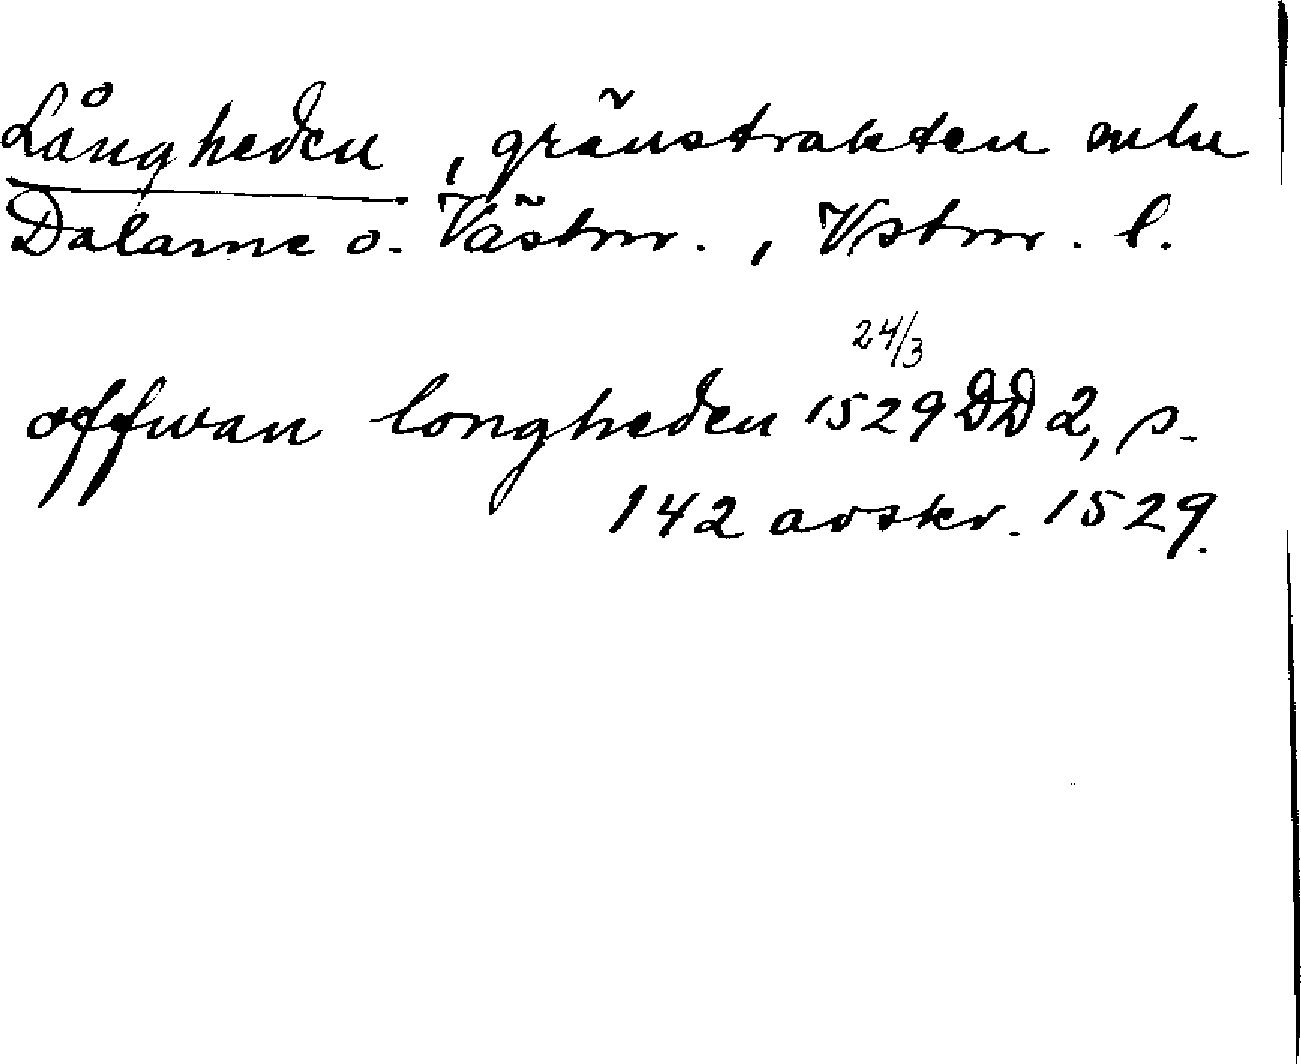 Långheden, gränstrakten mln
Dalarne o. Västm., Vstm. l.
24/3
offwan longheden 1529 DD 2, s.
142 avskr. 1529.